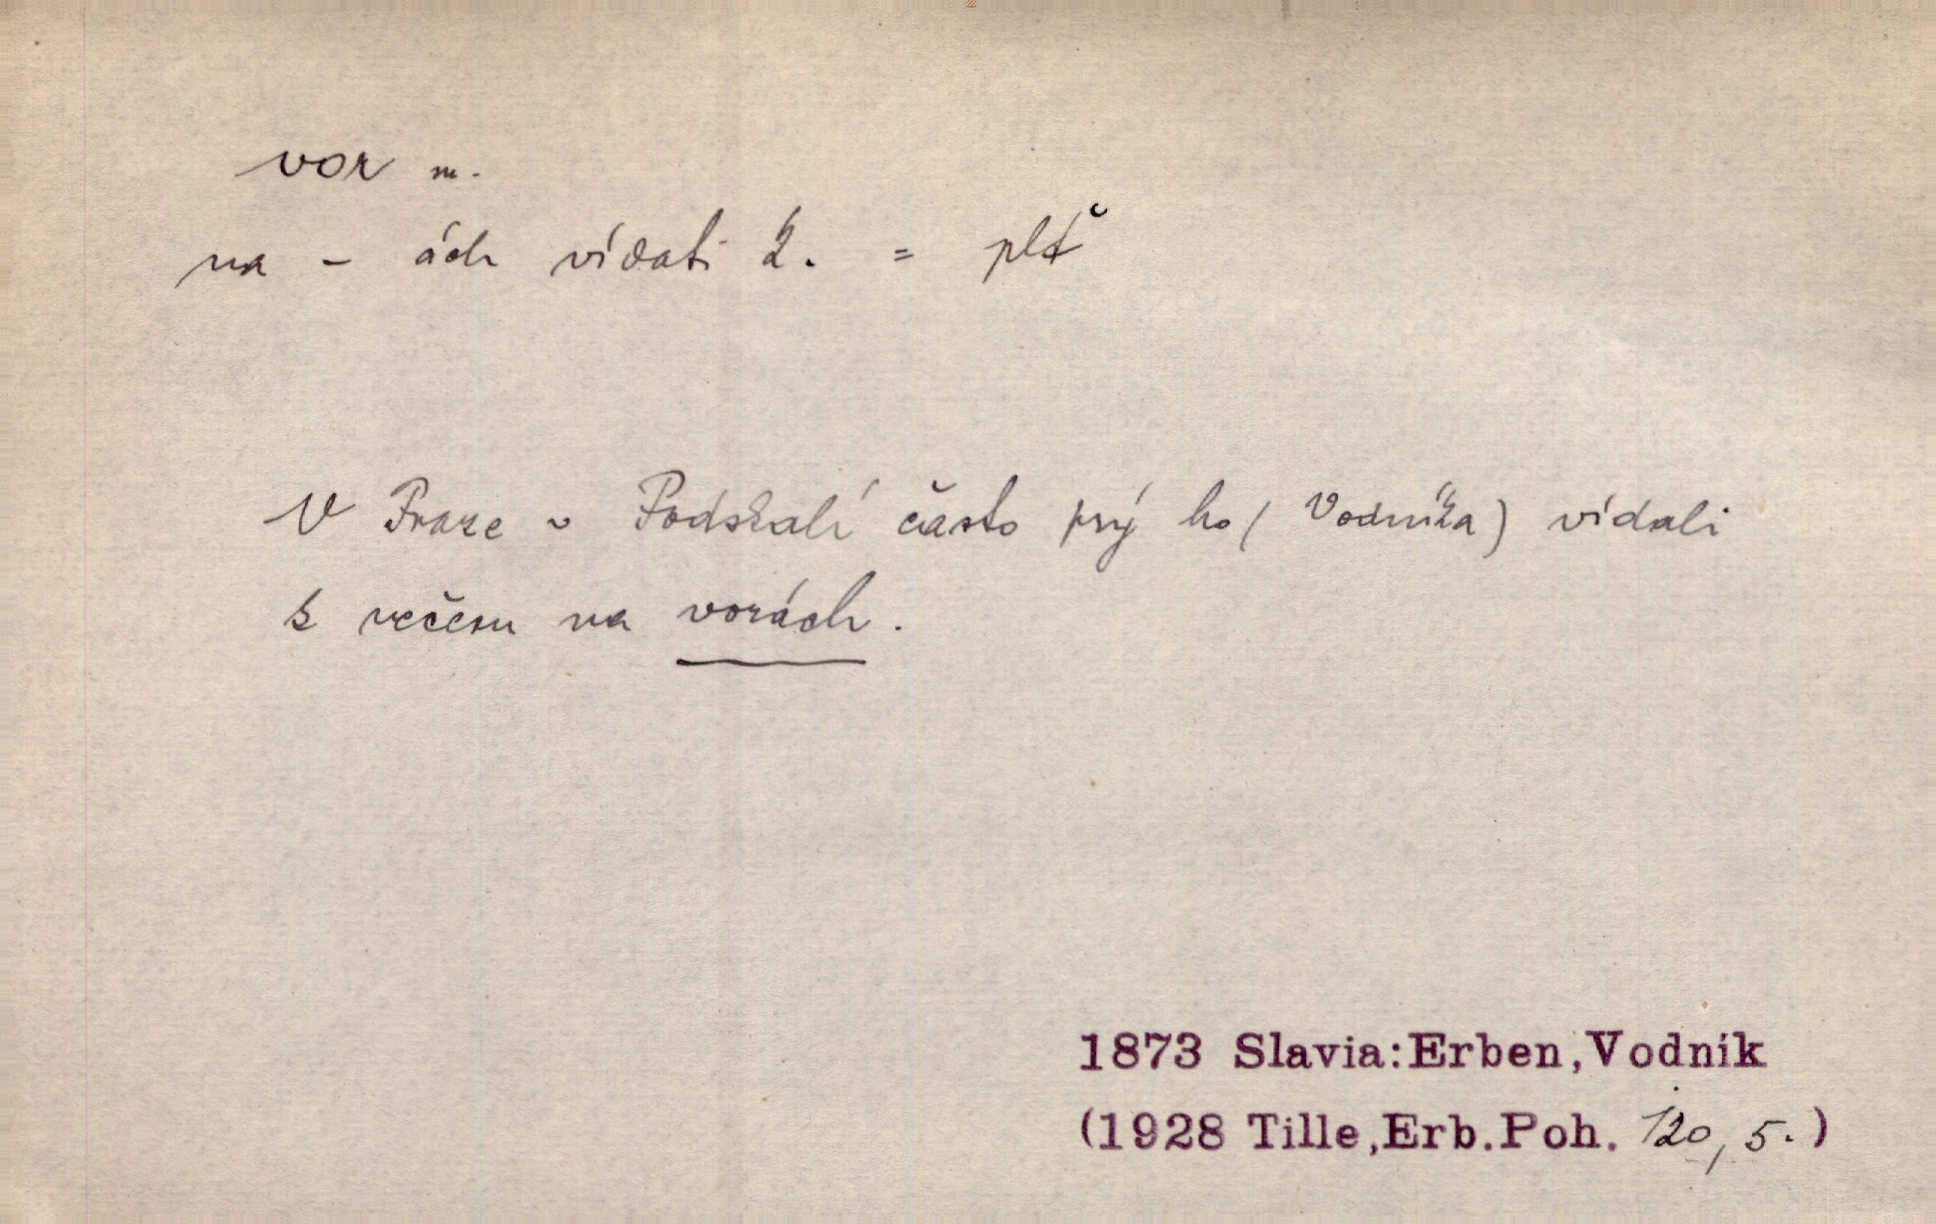 vor m.
na – ách vídati k. = plť
V Praze v Podskalí často prý ho (Vodníka) vídali
k večeru na vorách.
1873 Slavia:Erben,Vodník
(1928 Tille,Erb.Poh. 120, 5.)